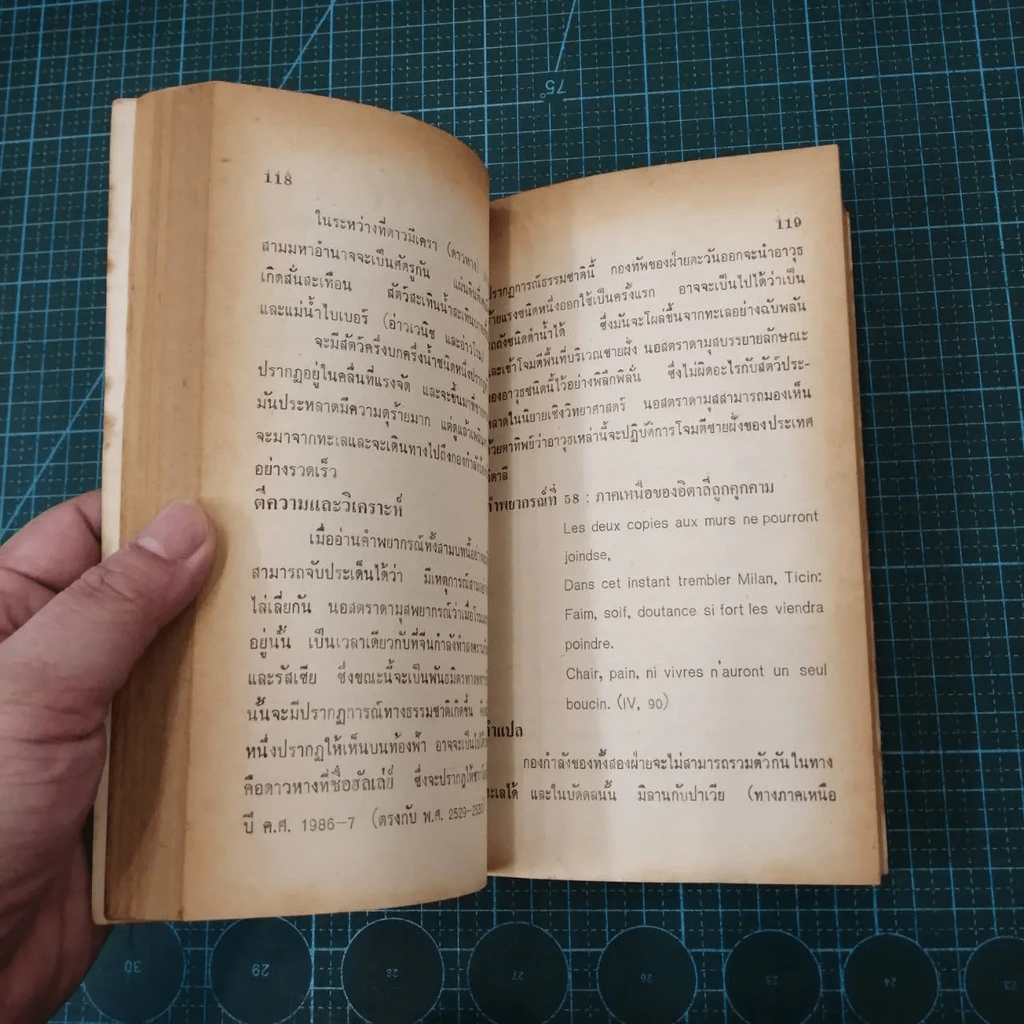 118
ในระหว่างที่ดาวมีเครา (ดาวหาง)
สามมหาอำนาจจะเป็นศัตรูกัน
เกิดสั่นสะเทือน สัตว์สะเทินน้ำสะเทินบก
และแม่น้ำไบเบอร์ (อ่าวเวนิช และอ่าวโรม)
จะมีสัตว์ครึ่งบกครึ่งน้ำชนิดหนึ่ง
ปรากฏอยู่ในคลื่นที่แรงจัด และจะขึ้นมาที่ชาย
มันประหลาดมีความดุร้ายมาก แต่ดูแล้ว
จะมาจากทะเลและจะเดินทางไปถึงกองกำลัง
อย่างรวดเร็ว
ตีความและวิเคราะห์
เมื่ออ่านคำพยากรณ์ทั้งสามบทนี้
สามารถจับประเด็นได้ว่า มีเหตุการณ์สาม
ไล่เลี่ยกัน นอสตราดามุสพยากรณ์ว่าเมื่อ
อยู่นั้น เป็นเวลาเดียวกับที่จีนกำลังทำสงคราม
และรัสเซีย ซึ่งขณะนี้จะเป็นพันธมิตรทาง
นั้นจะมีปรากฏการณ์ทางธรรมชาติเกิดขึ้น
หนึ่งปรากฏให้เห็นบนท้องฟ้า อาจจะเป็นไปได้
คือดาวหางที่ชื่อฮัลเล่ย์ ซึ่งจะปรากฏให้
ปี ค.ศ. 1986-7 (ตรงกับ พ.ศ. 2529-2530)
119
ปรากฏการณ์ธรรมชาตินี้ กองทัพของฝ่ายตะวันออกจะนำอาวุธ
ร้ายแรงชนิดหนึ่งออกใช้เป็นครั้งแรก อาจจะเป็นไปได้ว่าเป็น
รถถังชนิดดำน้ำได้ ซึ่งมันจะโผล่ขึ้นจากทะเลอย่างฉับพลัน
และเข้าโจมตีพื้นที่บริเวณชายฝั่ง นอสตราดามุสบรรยายลักษณะ
ของอาวุธชนิดนี้ไว้อย่างพิลึกพิลั่น ซึ่งไม่ผิดอะไรกับสัตว์ประ-
หลาดในนิยายเชิงวิทยาศาสตร์ นอสตราดามุสสามารถมองเห็น
ด้วยตาทิพย์ว่าอาวุธเหล่านี้จะปฏิบัติการโจมตีชายฝั่งของประเทศ
อิตาลี
คำพยากรณ์ที่ 58 : ภาคเหนือของอิตาลี่ถูกคุกคาม
Les deux copies aux murs ne pourront
joindse,
Dans cet instant trembler Milan, Ticin:
Faim, soif, doutance si fort les viendra
poindre.
Chair, pain, ni vivres n'auront un seul
boucin. (IV, 90)
คำแปล
กองกำลังของทั้งสองฝ่ายจะไม่สามารถรวมตัวกันในทาง
ทะเลได้ และในบัดดลนั้น มิลานกับปาเวีย (ทางภาคเหนือ